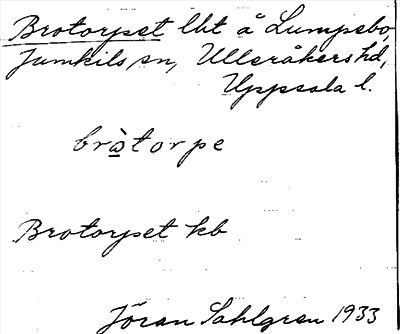 Brotorpet lht å Lumpebo,
Jumkils sn, Ulleråkers hd,
Uppsala l.
bròtorpe
Brotorpet kb
Jöran Sahlgren 1933